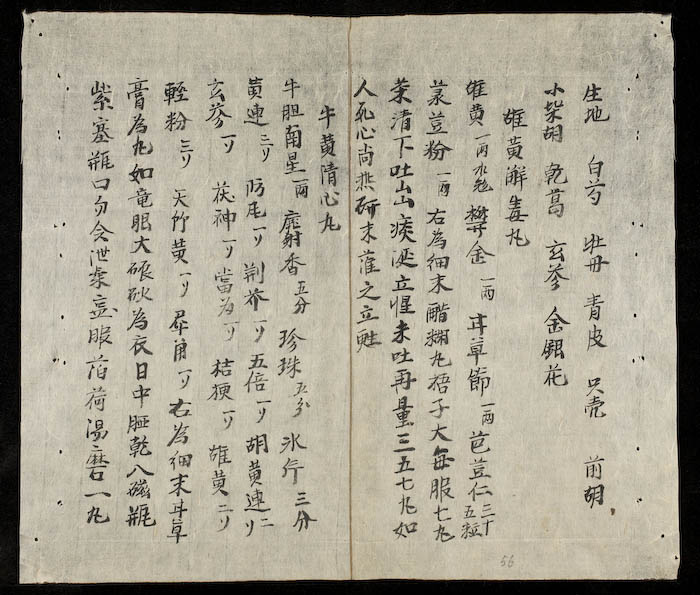 生地 白芍 牡丹 青皮 只壳 前胡
小柴胡 乾葛 玄参 金銀花
雄黄解毒丸
雄黄 一两水飛 欝金 一两 甘草節 一两 芭荳仁 三十五粒
菉荳粉 一两 右為細末醋糊丸梧子大每服七丸
茶清下吐出痰涎立惺未吐再量三五七丸如
人死心尚热研末灌之立甦
牛黄清心丸
牛胆南星 一两 麝香 五分 珍珠 五分 氷片 三分
黄連 二リ 防风 一リ 荆芥 一リ 五倍 一リ 胡黄連 二リ
玄参 一リ 茯神 一リ 當为 一リ 桔梗 一リ 雄黄 二リ
輕粉 三リ 天竹黄 一リ 犀角 一リ 右為細末甘草
膏為丸如竜眼大硍砂為衣日中晒乾入磁瓶
紫塞瓶口勿令泄气 服萡荷湯磨一丸
56